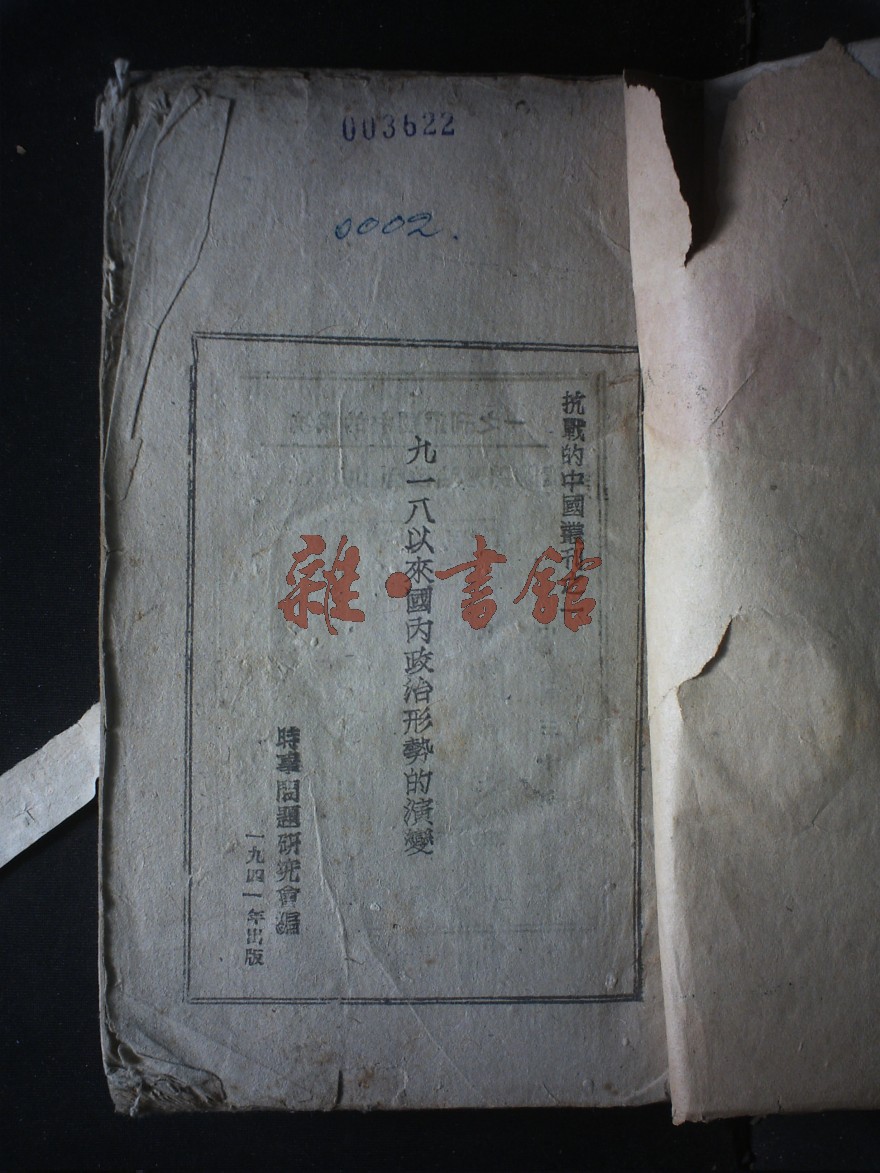 003622
0002.
抗戰的中國叢刊之一
九一八以來國內政治形勢的演變
時事問題研究會編
一九四一年出版
雜·書館